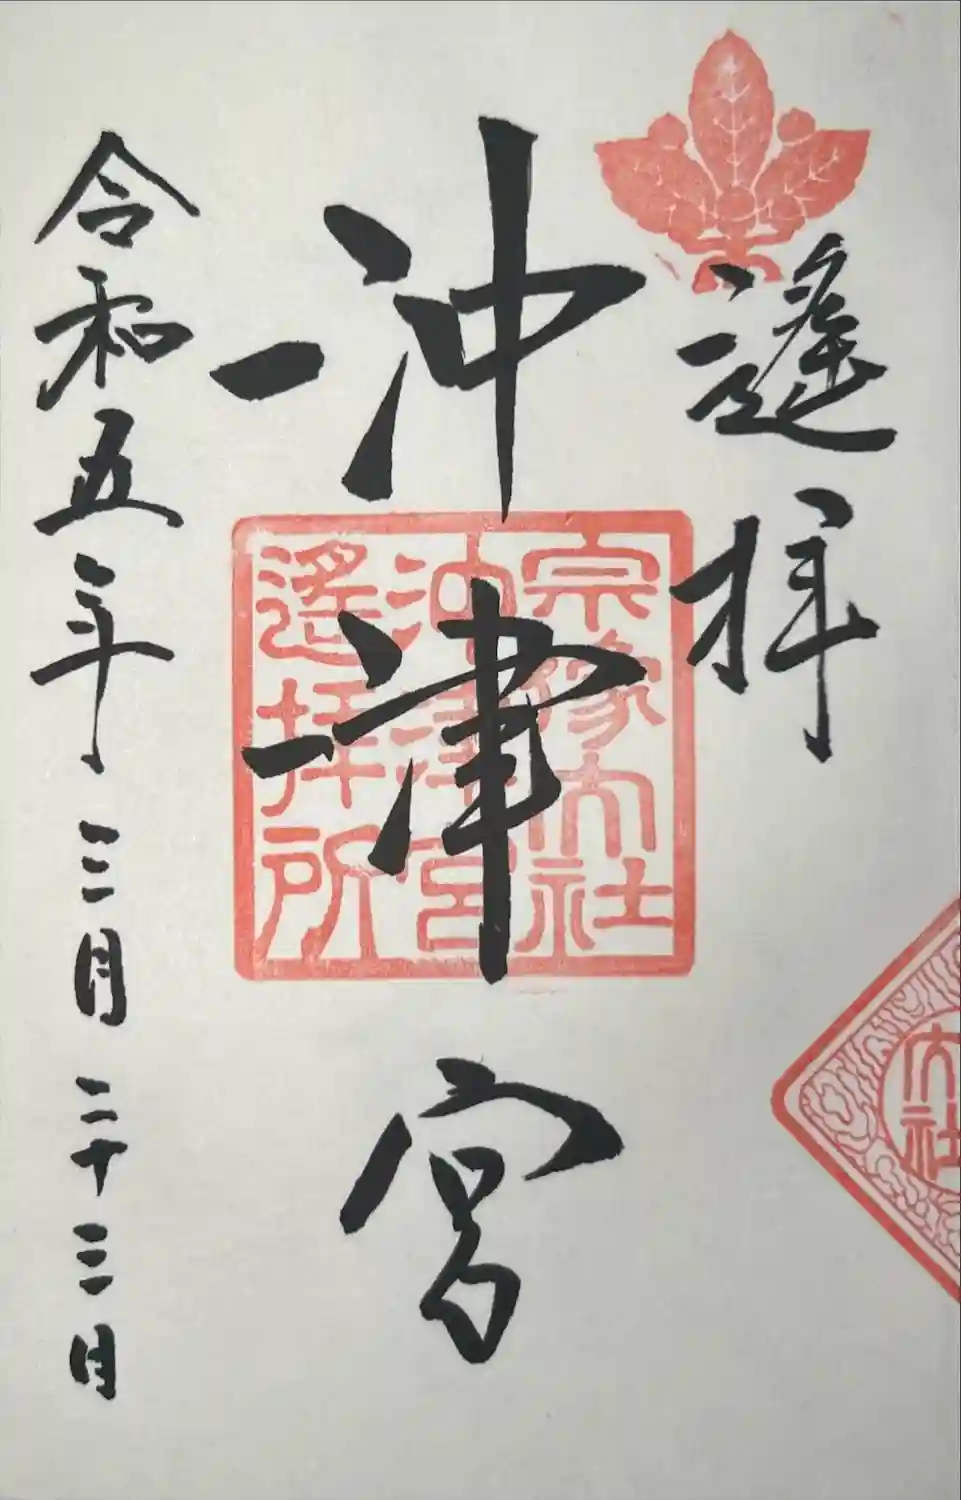 遥拝
沖津宮
令和五年三月二十三日
宗像大社
沖津宮
遙拝所
大社